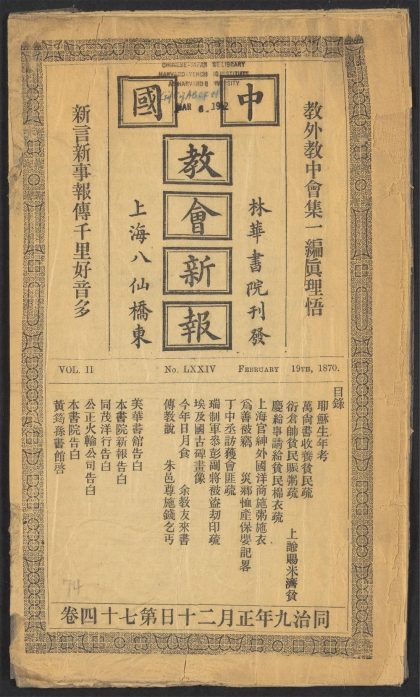 CHINESE-JAPANESE LIBRARY
HARVARD-YENCHING INSTITUTE
AT HARVARD UNIVERSITY
MAR 6 1952
中國
教會新報
教外教中會集一編眞理悟
林華書院刊發
上海八仙橋東
新言新事報傳千里好音多
VOL. II
No. LXXIV
FEBRUARY 19TH, 1870.
目錄
耶穌生年考
萬尚書收養貧民疏
衍倉帥貧民賑粥疏 上諭賜米濟貧
慶給事請給貧民棉衣疏
上海官紳外國洋商施粥施衣
爲善被竊 災鄉恤產保嬰記畧
丁中丞訪獲會匪疏
瑞制軍叅彭副將被盜劫印疏
埃及國古碑畫像
今年日月食 余敎友來書
傳敎說 朱邑尊施錢乞丐
美華書館告白
本書院新報告白
同茂洋行告白
公正火輪公司告白
本書院告白
黃筠孫書館啓
74
同治九年正月二十日第七十四卷